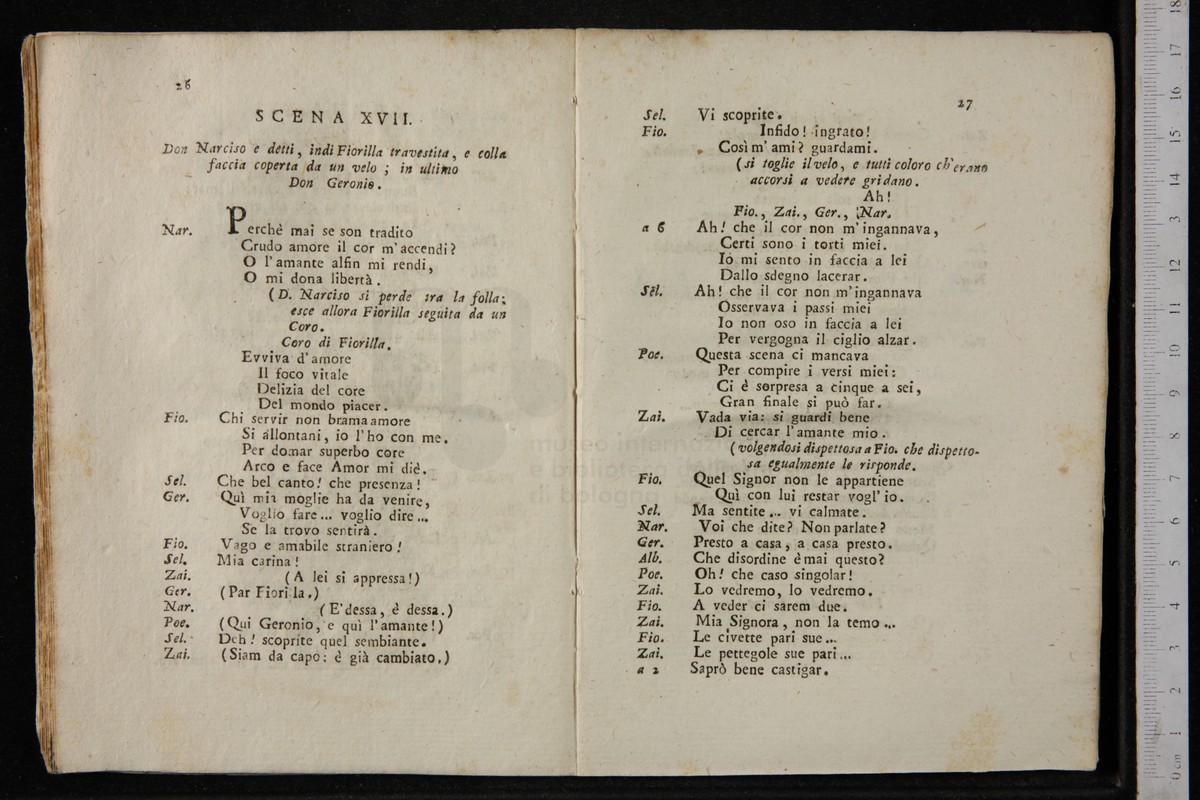 26
SCENA XVII.
Don Narciso e detti, indi Fiorilla travestita, e colla
faccia coperta da un velo; in ultimo
Don Geronio.
Nar. Perchè mai se son tradito
Crudo amore il cor m'accendi?
O l'amante alfin mi rendi,
O mi dona libertà.
(D. Narciso si perde tra la folla;
esce allora Fiorilla seguita da un
Coro.
Coro di Fiorilla.
Evviva d'amore
Il foco vitale
Delizia del core
Del mondo piacer.
Fio. Chi servir non brama amore
Si allontani, io l'ho con me.
Per domar superbo core
Arco e face Amor mi diè.
Sel. Che bel canto! che presenza!
Ger. Quì mia moglie ha da venire,
Voglio fare... voglio dire...
Se la trovo sentirà.
Fio. Vago e amabile straniero!
Sel. Mia carina!
Zai. (A lei si appressa!)
Ger. (Par Fiorilla.)
Nar. (E' dessa, è dessa.)
Poe. (Qui Geronio, e quì l'amante!)
Sel. Deh! scoprite quel sembiante.
Zai. (Siam da capo: è già cambiato.)
27
Sel. Vi scoprite.
Fio. Infido! ingrato!
Così m'ami? guardami.
(si toglie il velo, e tutti coloro ch'erano
accorsi a vedere gridano.
Ah!
Fio., Zai., Ger., Nar.
a 6 Ah! che il cor non m'ingannava,
Certi sono i torti miei.
Io mi sento in faccia a lei
Dallo sdegno lacerar.
Sel. Ah! che il cor non m'ingannava
Osservava i passi miei
Io non oso in faccia a lei
Per vergogna il ciglio alzar.
Poe. Questa scena ci mancava
Per compire i versi miei:
Ci è sorpresa a cinque a sei,
Gran finale si può far.
Zai. Vada via: si guardi bene
Di cercar l'amante mio.
(volgendosi dispettosa a Fio. che dispetto-
sa egualmente le risponde.
Fio. Quel Signor non le appartiene
Quì con lui restar vogl'io.
Sel. Ma sentite... vi calmate.
Nar. Voi che dite? Non parlate?
Ger. Presto a casa, a casa presto.
Alb. Che disordine è mai questo?
Poe. Oh! che caso singolar!
Zai. Lo vedremo, lo vedremo.
Fio. A veder ci sarem due.
Zai. Mia Signora, non la temo...
Fio. Le civette pari sue...
Zai. Le pettegole sue pari...
a 2 Saprò bene castigar.